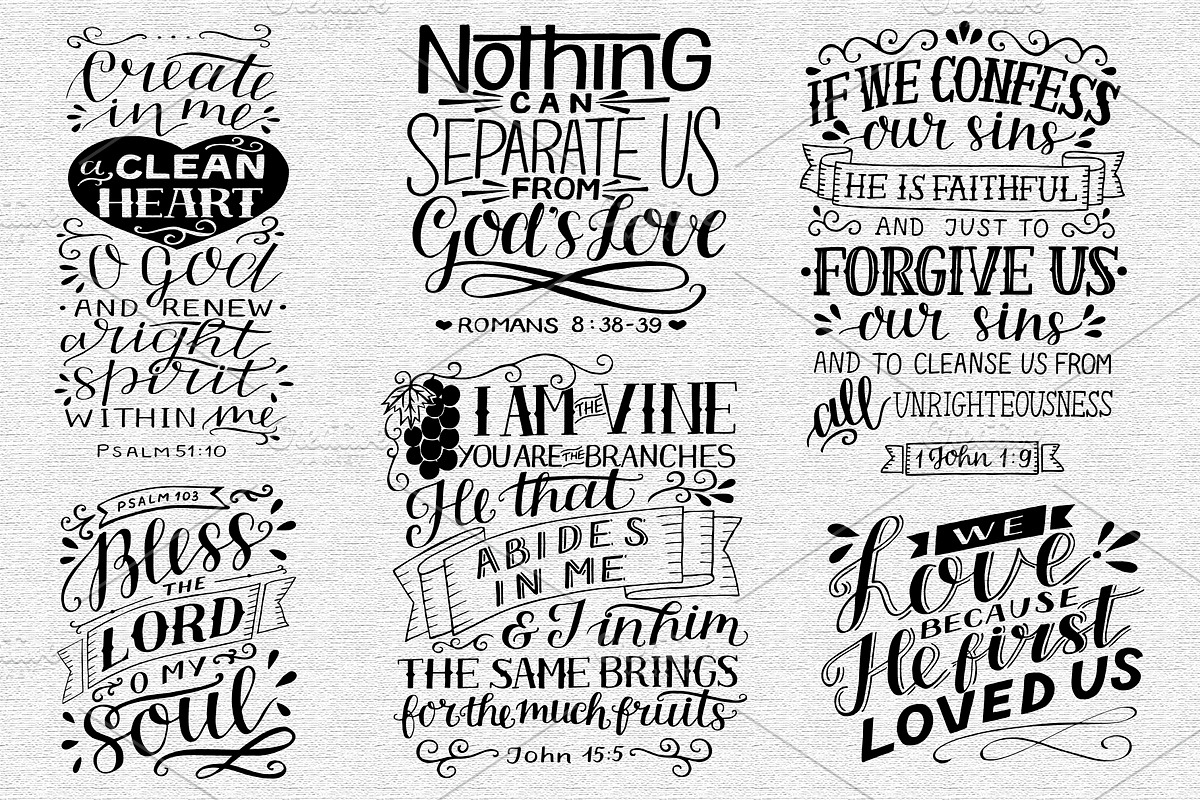 Create
in me
a CLEAN
HEART
O God
· AND RENEW ·
aright
spirit
WITHIN me
PSALM 51:10
NOTHING
CAN
SEPARATE US
FROM
God's Love
ROMANS 8:38-39
IF WE CONFESS
our sins
HE IS FAITHFUL
AND JUST TO
·FORGIVE US·
our sins
AND TO CLEANSE US FROM
all UNRIGHTEOUSNESS
1 John 1:9
PSALM 103
Bless
THE
LORD
O MY
soul
I AM THE VINE
YOU ARE THE BRANCHES
He that
ABIDES
IN ME
& I in him
THE SAME BRINGS
for the much fruits
John 15:5
WE
Love
BECAUSE
He first
LOVED US